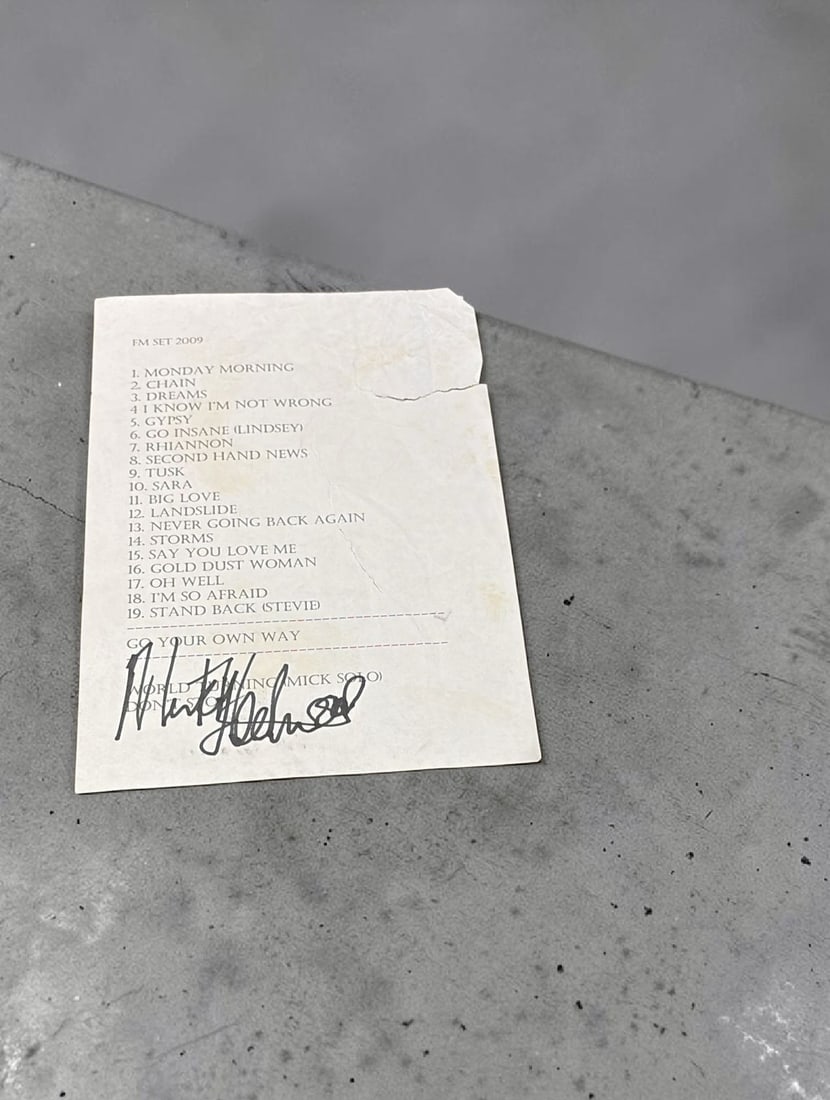 FM SET 2009
1. MONDAY MORNING
2. CHAIN
3. DREAMS
4 I KNOW I'M NOT WRONG
5. GYPSY
6. GO INSANE (LINDSEY)
7. RHIANNON
8. SECOND HAND NEWS
9. TUSK
10. SARA
11. BIG LOVE
12. LANDSLIDE
13. NEVER GOING BACK AGAIN
14. STORMS
15. SAY YOU LOVE ME
16. GOLD DUST WOMAN
17. OH WELL
18. I'M SO AFRAID
19. STAND BACK (STEVIE)
GO YOUR OWN WAY
WORLD TURNING (MICK SOLO)